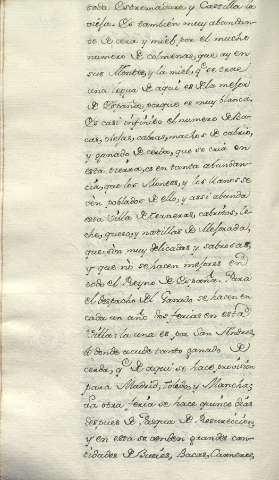 toda Estremadura, y Castilla la
vieja. Es tambien muy abundan-
te de cera y miel, por el mucho
numero de colmenas, que ay en
sus Montes, y la miel, q.e se crie
una legua de aqui es la mejor
de España, porque es muy blanca.
Es casi infinito el numero de Ba-
cas, obejas, cabras, machos de cabrio,
y ganado de cerda, que se cria en
esta tierra, es en tanta abundan-
cia, que los Montes, y los llanos se
ven poblados de ello, y assi abunda
esta Villa de terneras, cabritos, le-
che, queso, y natillas de
que son muy delicadas y sabrosas,
y que no se hacen mejores en
todo el Reyno de España. Para
el despacho del Ganado se hacen en
cada un año dos ferias en esta
Villa: la una es por San Andres,
a donde acude tanto ganado de
cerda, q.e de aqui se hace provision
para Madrid, Toledo, y Mancha;
La otra feria se hace quince dias
despues de Pasqua de Resurreccion,
y en esta se venden grandes can-
tidades de Bueies, Bacas, Carneros,